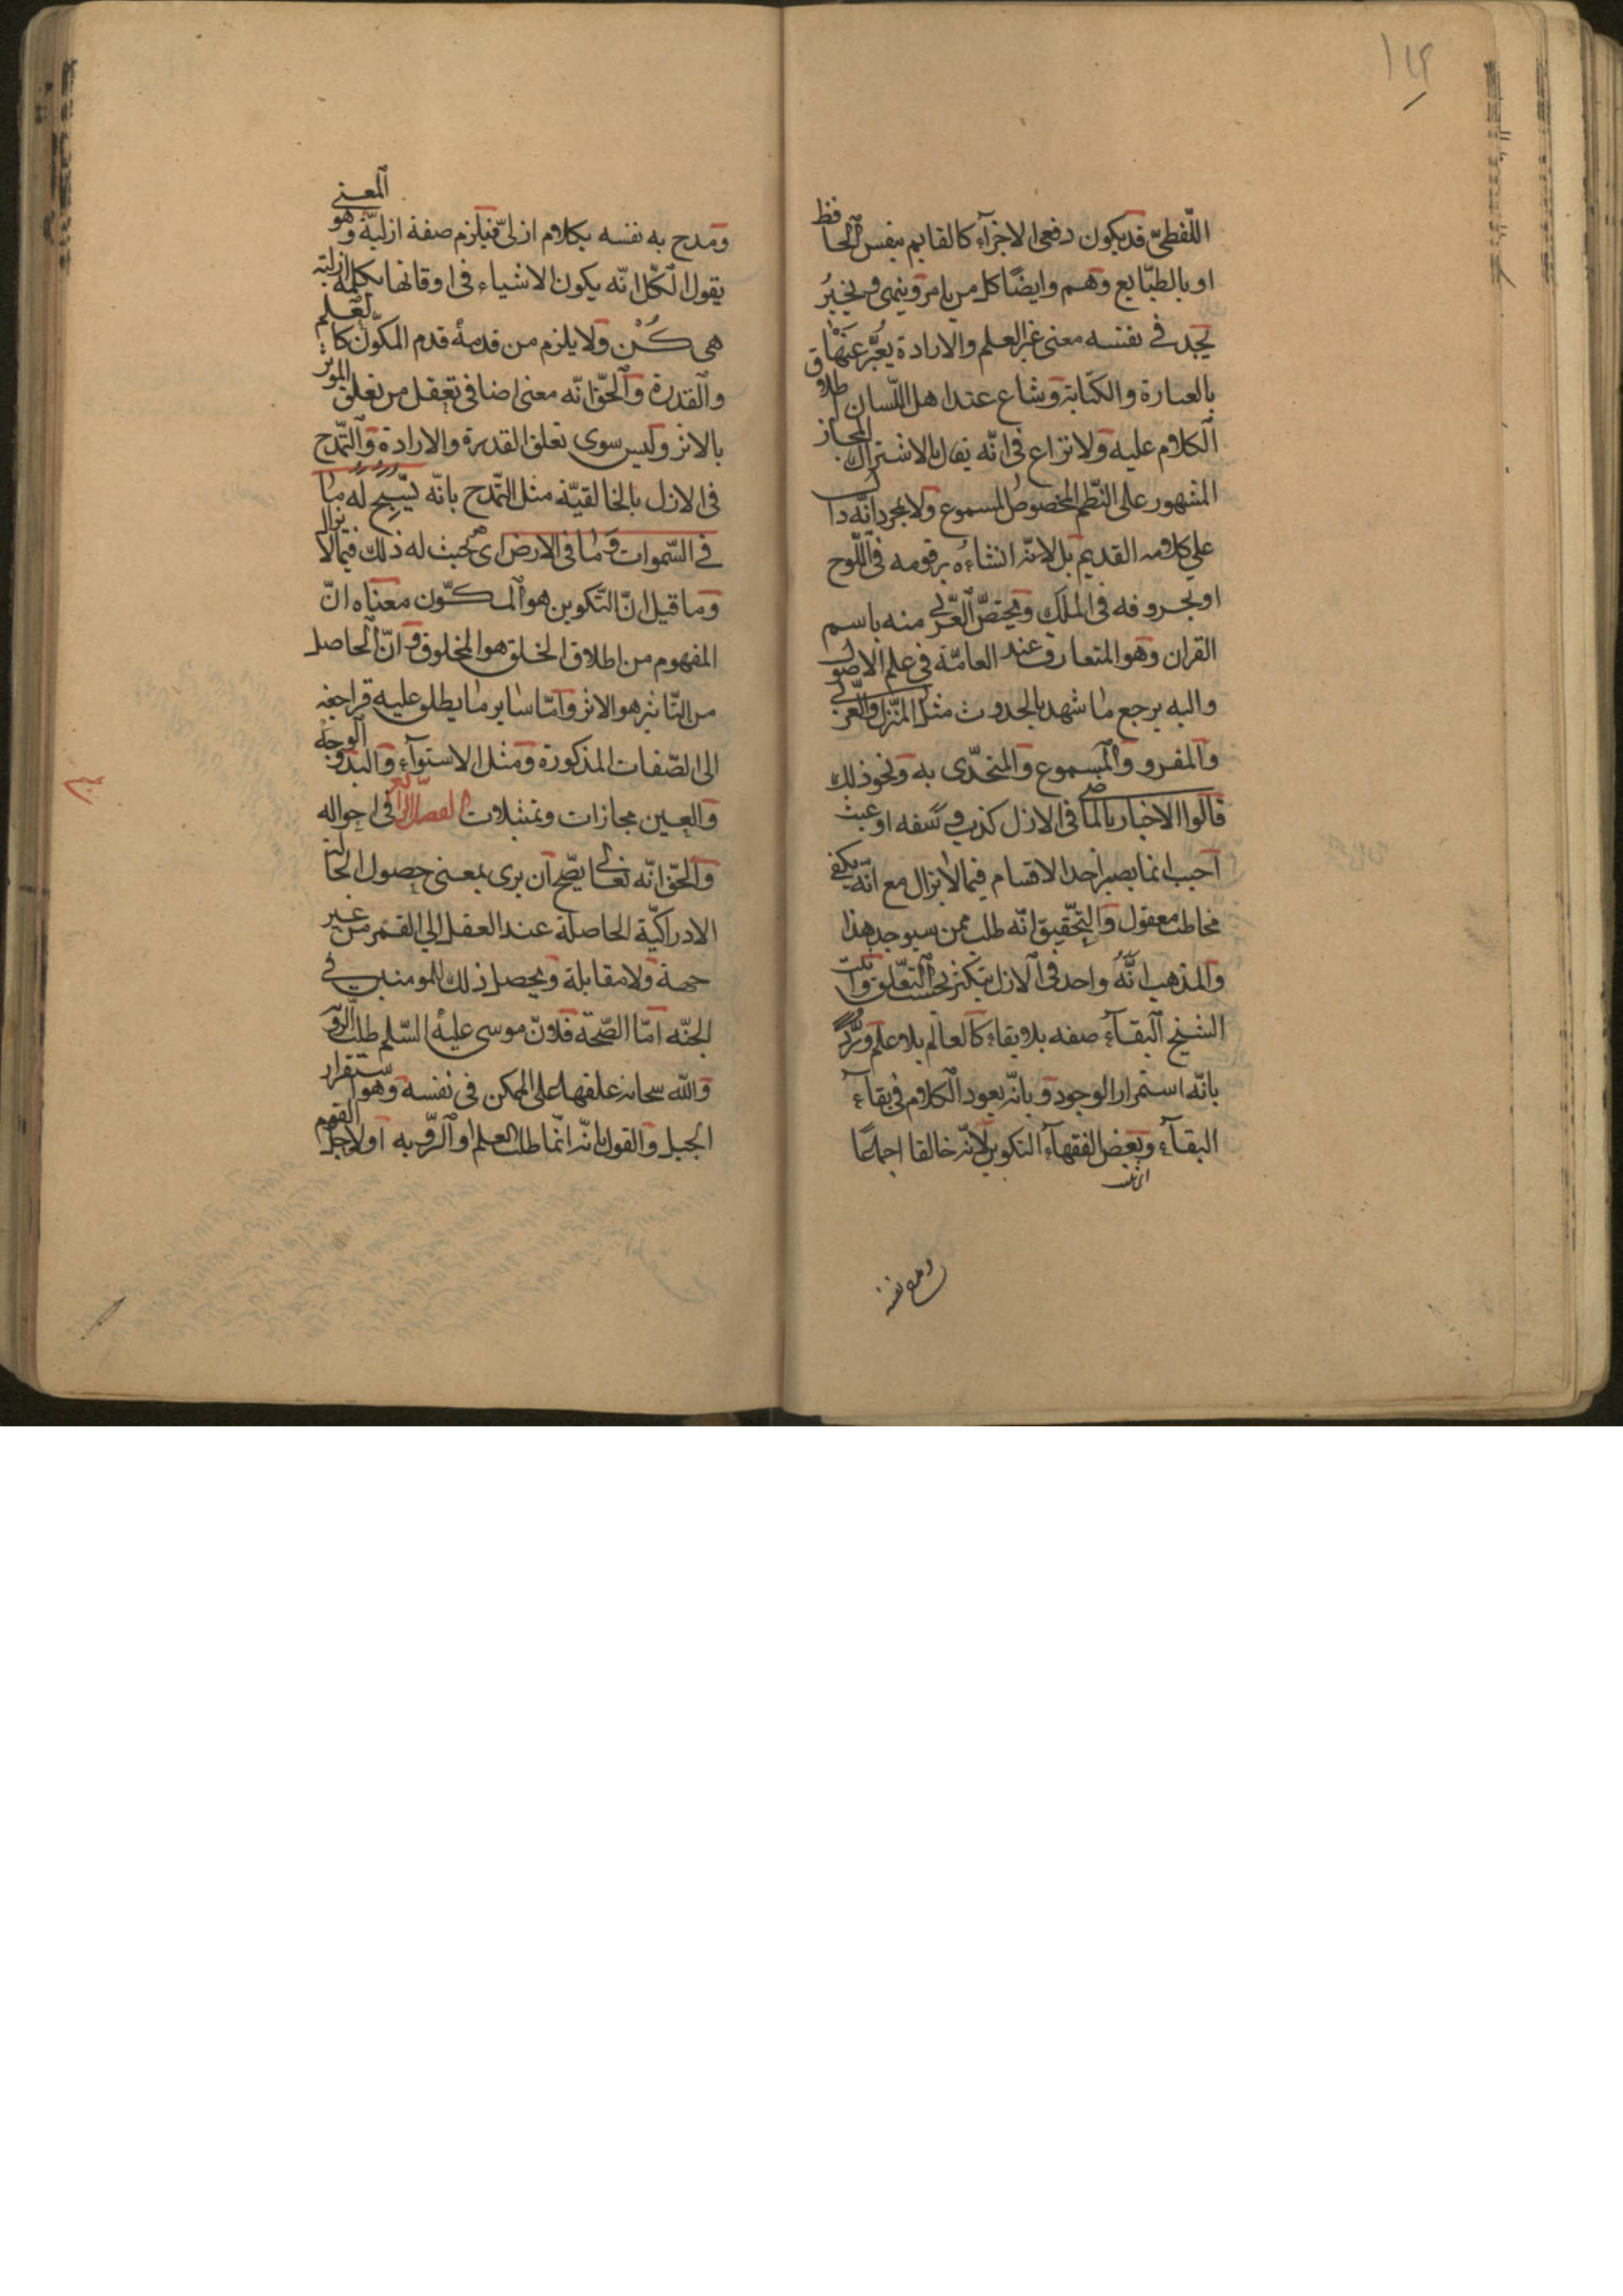 اللّفظىّ قد يكون دفعى الاجزآء كالقايم بنفس الحافظ
او بالطّبايع وهم وايضًا كل من يامر وينهى ويخبرُ
يجد فى نفسه معنى غير العلم والارادة يعبّر عنها
بالعبارة والكتابة وشاع عند اهل اللّسان اطلاق
الكلام عليه ولا نزاع فى انّه يقال بالاشتراك المجاز
المشهور على النّظم المخصوص المسموع ولا بمجرد انّه دال
على كلامه القديم بل لانّه انشاءه برقومه فى اللّوح
او بحروفه فى الملك ويختصّ العربى منه باسم
القران وهو المتعارف عند العامّة فى علم الاصول
واليه يرجع ما شهد بالحدوث مثل المنزل والعربى
والمقرو والمسموع والمتحدّى به ونحو ذلك
قالوا الاخبار بالماضى فى الازل كذب و سفه او عبث
اجيب انما يصير احد الاقسام فيما لا يزال مع انّه يكفى
مخاطب معقول والتحقيق انّه طلب ممن سيوجد هذا
والمذهب انّهُ واحد فى الازل يتكثر بحسب التعلّق واثبت
الشيخ البقآء صفه بلا بقاء كالعالم بلا علم وردّ
بانّه استمرار الوجود وبانّه يعود الكلام فى بقآء
البقآء وبعض الفقهآء التكوين لانّه خالقا اجماعًا
اثبت
ومدح به نفسه
ومدح به نفسه بكلام ازلىّ فيلزم صفة ازليّة وهو المعنى
يقول الكل انّه يكون الاشياء فى اوقاتها بكلمة ازلية
هى كُنْ ولا يلزم من قدمه قدم المكوّن كالعلم
والقدرة والحقّ انّه معنى اضافى تعقل من تعلق الموثر
بالاثر وليس سوى تعلق القدرة والارادة والتّمدّح
فى الازل بالخالقيّة مثل التمدّح بانّه يسّبح له ما
فى السّموات وما فى الارض اى هو بحيث له ذلك فيما لا يزال
وما قيل انّ التّكوين هو المكوّن معناه انّ
المفهوم من اطلاق الخلق هو المخلوق و انّ الحاصل
من التّاثير هو الاثر وامّا ساير ما يطلق عليه فراجعة
الى الصّفات المذكورة ومثل الاستوآء واليد والوجه
والعين مجازات وتمثيلات الفصل الرابع فى احواله
والحقّ انّه تعالى يصّح ان يرى بمعنى حصول الحالة
الادراكيّة الحاصلة عند العقل الى القمر من غير
جهة ولا مقابلة ويحصل ذلك للمومنين فى
الجنّه امّا الصّحة فلانّ موسى عليه السّلم طلب الرؤية
والله سبحانه علقها على الممكن فى نفسه وهو استقرار
الجبل والقول بانّه انّما طلب العلم او الرّوية به او لاجل القوم